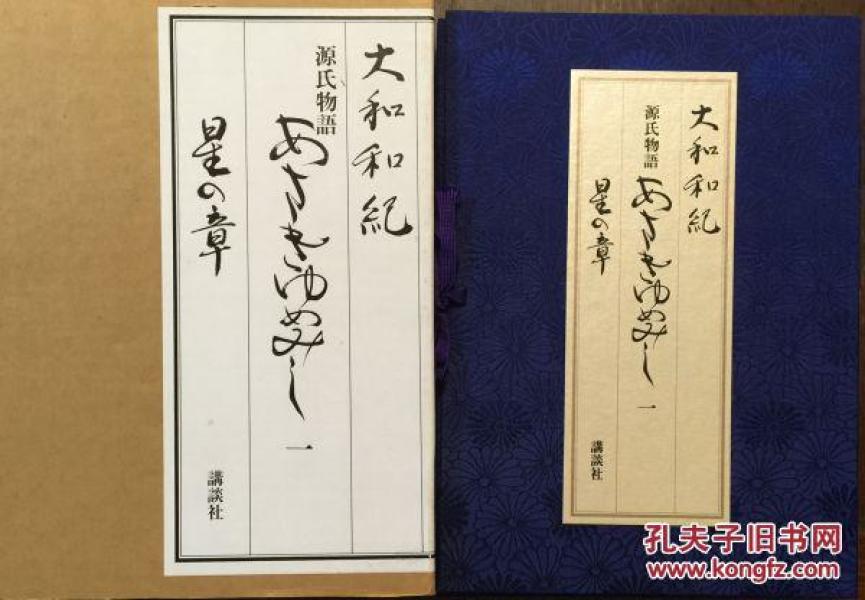 大和和紀
源氏物語
あさきゆめみし 一
星の章
講談社
大和和紀
源氏物語
あさきゆめみし 一
星の章
講談社
孔夫子旧书网
www.kongfz.com